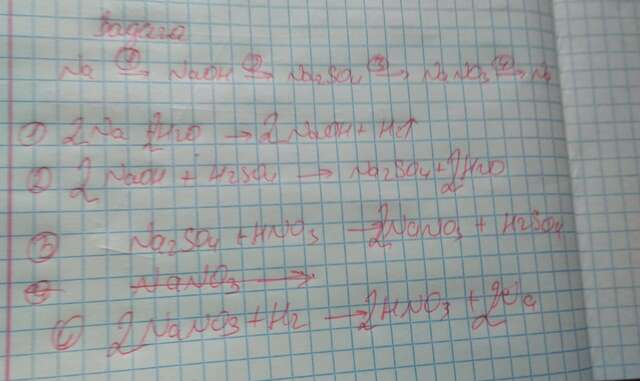 Задача
Na ①→ NaOH ②→ Na2SO4 ③→ NaNO3 ④→ Na
① 2Na 2H2O → 2NaOH + H2↑
② 2NaOH + H2SO4 → Na2SO4 + 2H2O
③ Na2SO4 + HNO3 → 2NaNO3 + H2SO4
④ NaNO3 →
2NaNO3 + H2 → 2HNO3 + 2Na